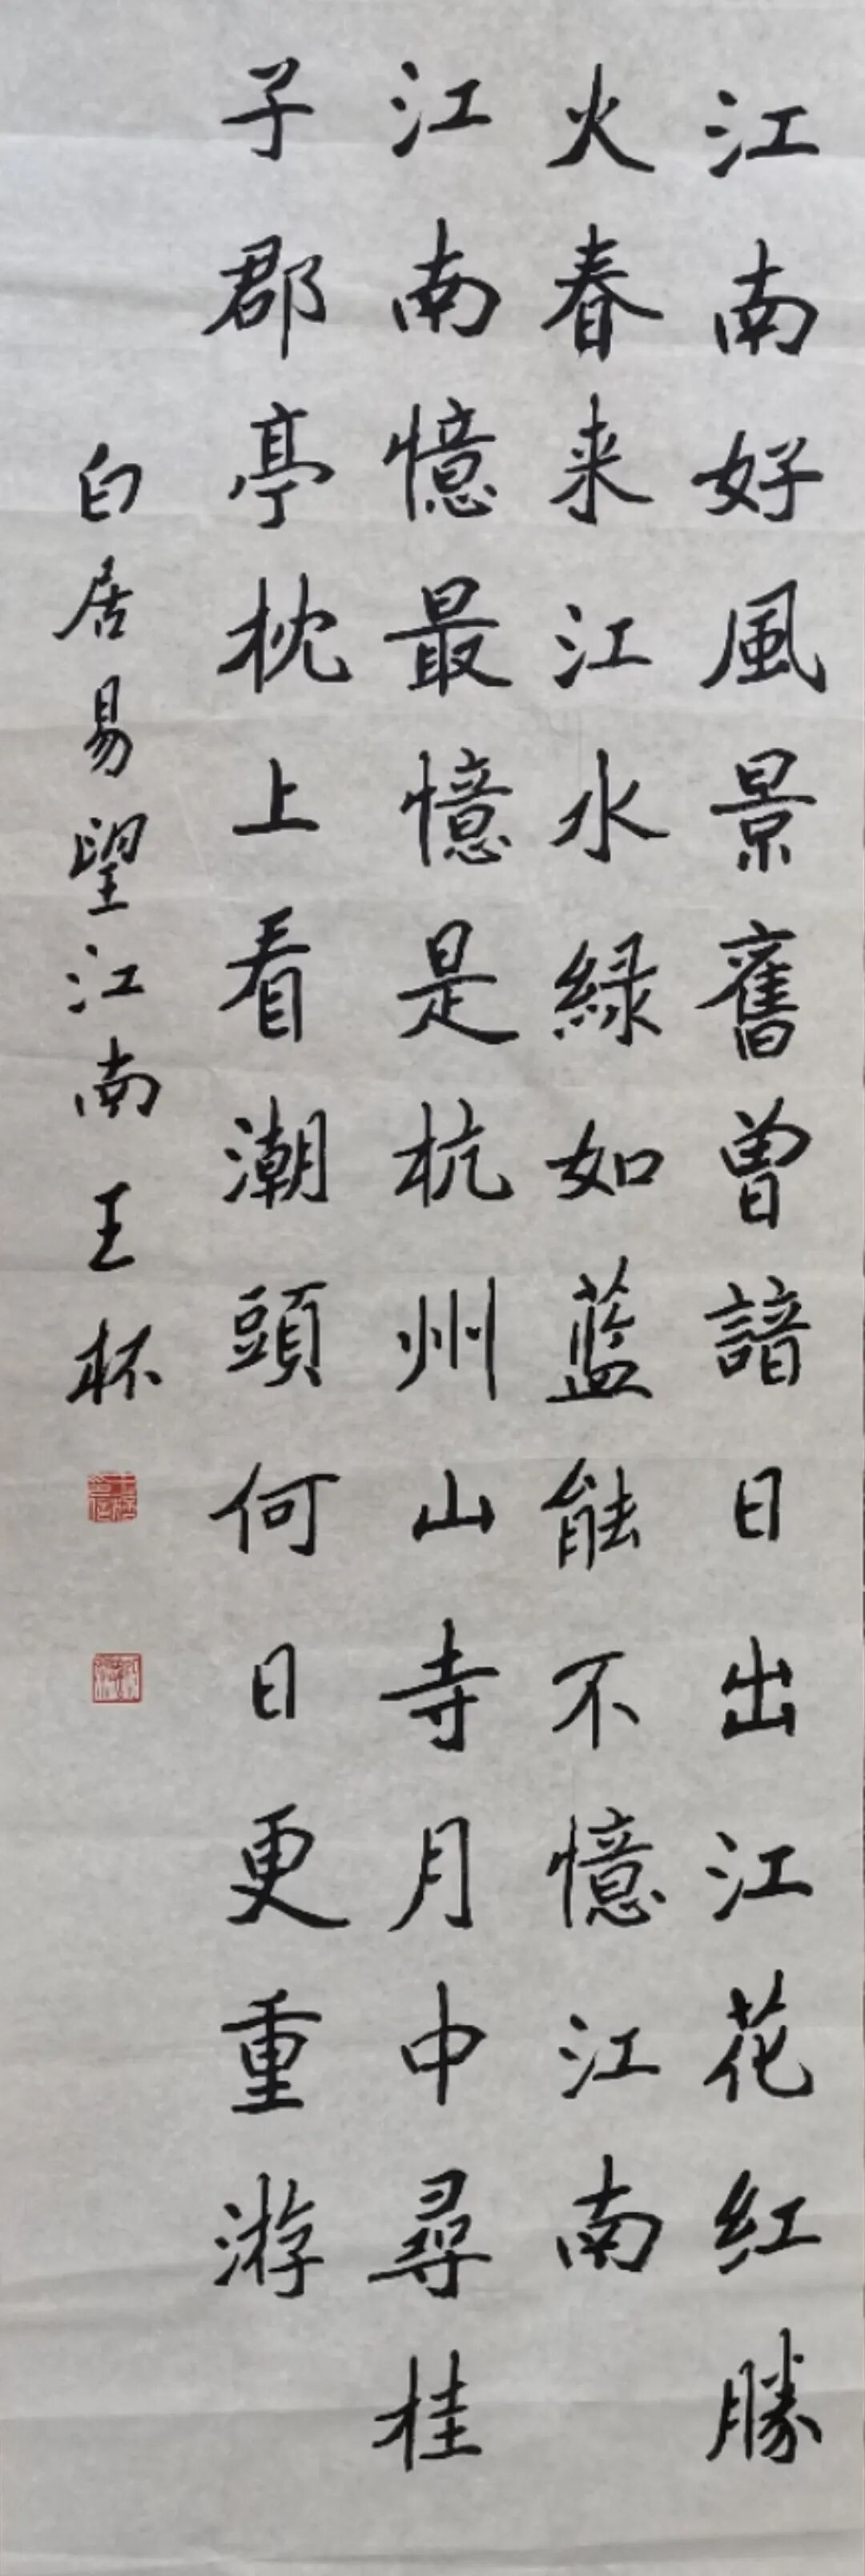 江南好風景舊曾諳日出江花红勝
火春来江水緑如蓝能不憶江南
江南憶最憶是杭州山寺月中尋桂
子郡亭枕上看潮頭何日更重游
白居易望江南王杯